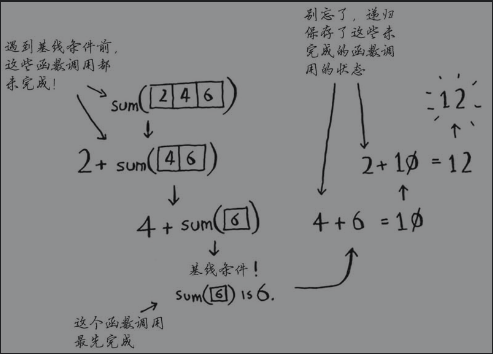 遇到基线条件前，
这些函数调用都
未完成！
sum([2|4|6])
2 + sum([4|6])
4 + sum([6])
基线条件！
sum([6]) is 6.
这个函数调用
最先完成
别忘了，递归
保存了这些未
完成的函数调
用的状态
12
2 + 10 = 12
4 + 6 = 10